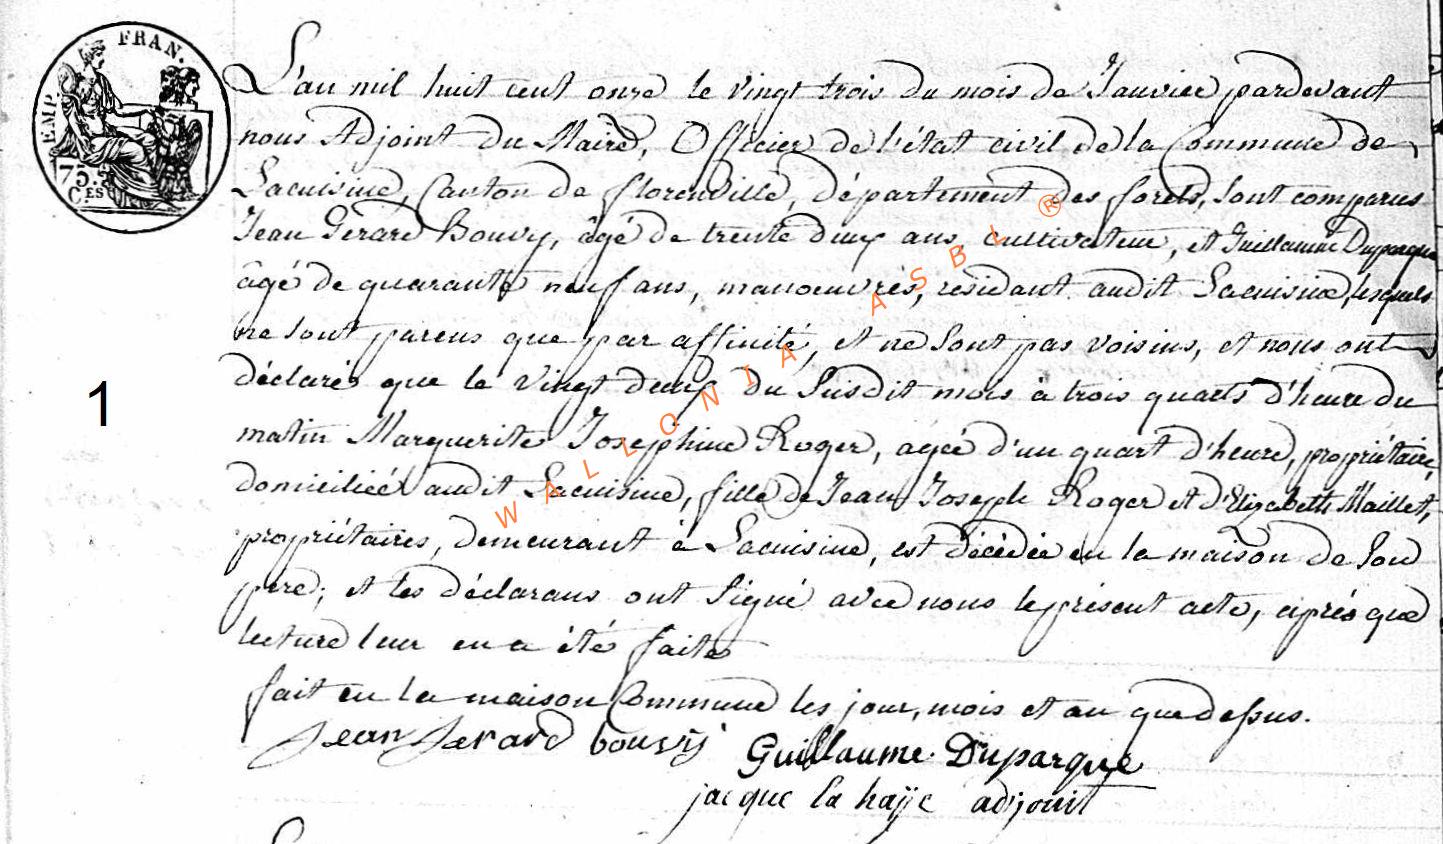 EMP. FRAN.
75.
C.ES
L'an mil huit cent onze le vingt trois du mois de Janvier pardevant
nous Adjoint du Maire, Officier de l'état civil de la Commune de
Lacuisine, Canton de florenville, département des forêts, sont comparus
Jean Gerard Bouvy, âgé de trente deux ans, cultivateur, et Guillaume Duparque
âgé de quarante neuf ans, manoeuvres, residant audit Lacuisine, lesquels
ne sont parens que par affinité, et ne sont pas voisins, et nous ont
déclarés que le vingt deux du susdit mois à trois quarts d'heure du
1
matin Marguerite Josephine Roger, agée d'un quart d'heure, propriétaire,
domiciliée audit Lacuisine, fille de Jean Joseph Roger et d'Elizabeth Maillet,
propriétaires, demeurant à Lacuisine, est décédée en la maison de son
pere; et les déclarans ont signé avec nous le présent acte, après que
lecture leur en a été faite
fait en la maison Commune les jour, mois et an que dessus.
Jean Jerard bouvij Guillaume Duparque
jacque la haije adjoint
WALLONIA ASBL ®